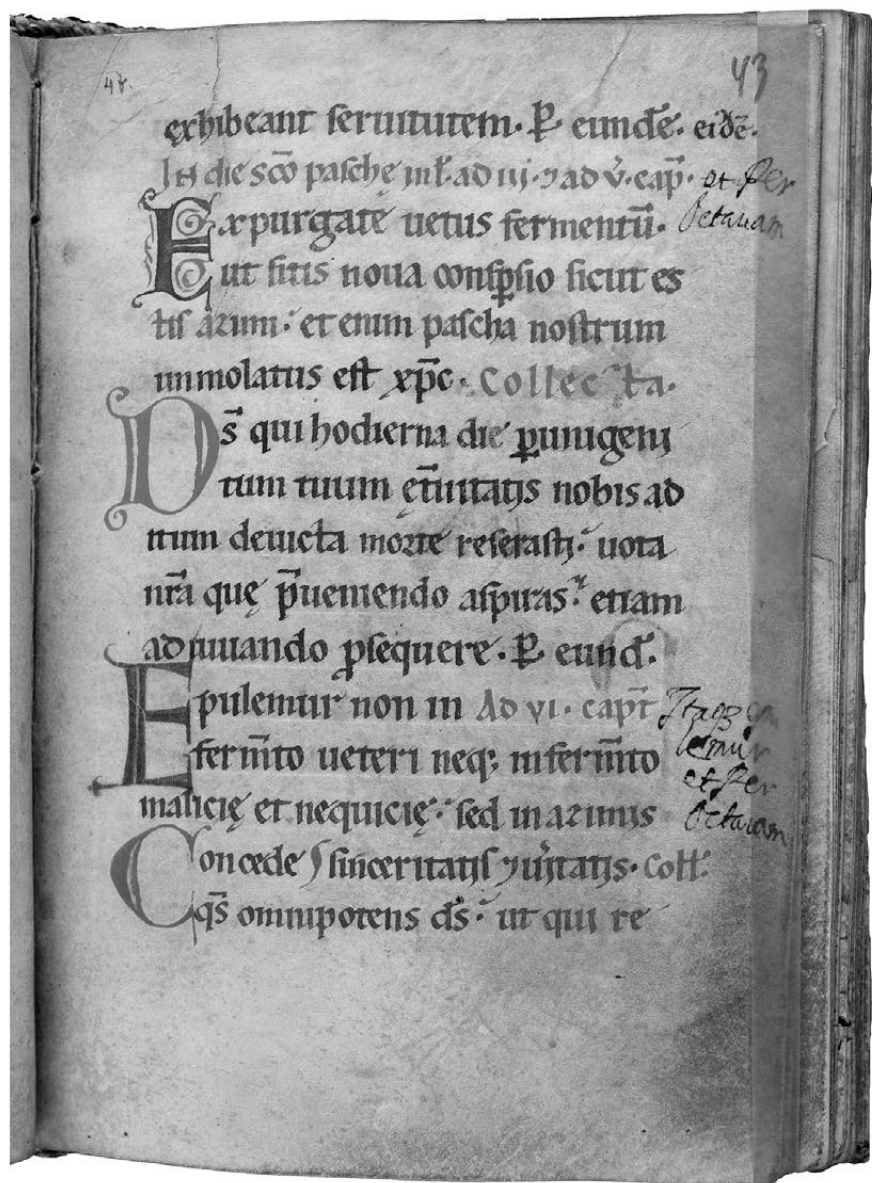 43
exhibeant seruitutem. P̱ eunde̅. eide̅.
In die sc̅o paschę ml̅. ad iij. ⁊ ad v̅. cap̅. et Per
Octauam
Expurgate uetus fermentu̅.
ut sitis noua conspersio sicut es
tis azimi. et enim pascha nostrum
immolatus est xp̅c. Collecta.
Ds̅ qui hodierna die ꝑunigeni
tum tuum ęt̅nitatis nobis ad
itum deuicta morte reserasti. uota
nr̅a que̜ p̅ueniendo aspiras. etiam
adiuuando ꝓsequere. P̱ eund̅.
Epulemur non in Ad vi. capt̅
ferm̅to ueteri neq; in ferm̅to
et Per
malicię et nequicię. sed in azimis Octauam
Concede sinceritatis ⁊ ueritatis. Coll̅.
qs̅ omnipotens ds̅. ut qui re